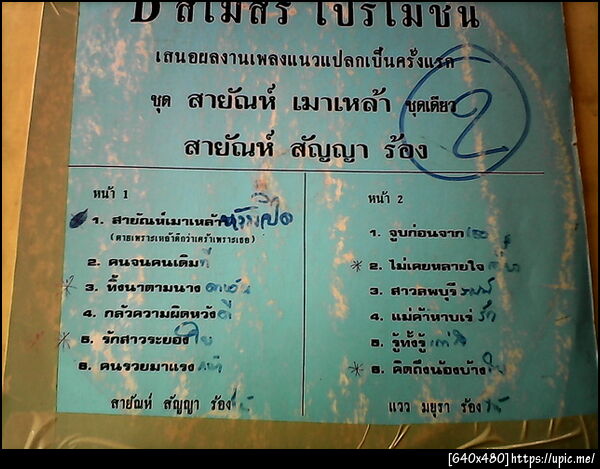 D สโมสร โปรโมชั่น
เสนอผลงานเพลงแนวแปลกเป็นครั้งแรก
ชุด สายัณห์ เมาเหล้า ชุดเดียว
2
สายัณห์ สัญญา ร้อง
หน้า 1
1. สายัณห์เมาเหล้า
(ตายเพราะเหล้าดีกว่าเศร้าเพราะเธอ)
2. คนจนคนเดิม
3. ทิ้งนาตามนาง
4. กลัวความผิดหวัง
5. รักสาวระยอง
6. คนรวยมาแรง
สายัณห์ สัญญา ร้อง
หน้า 2
1. จูบก่อนจาก
2. ไม่เคยหลายใจ
3. สาวลพบุรี
4. แม่ค้าหาบเร่
5. รู้ทั้งรู้
6. คิดถึงน้องบ้าง
แวว มยุรา ร้อง
[640x480]https://upic.me/